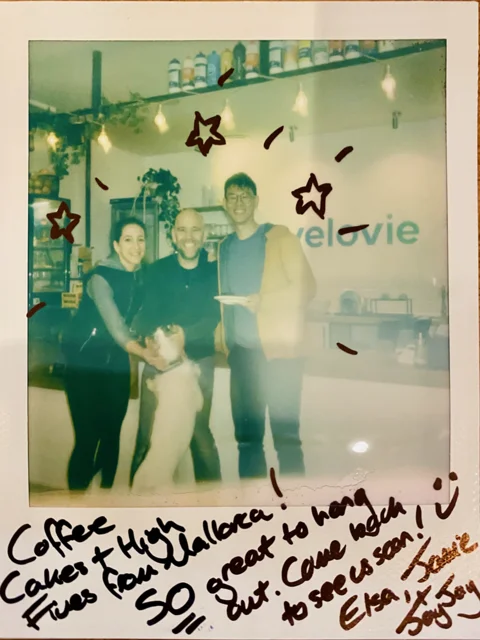 velovie
Coffee
Cakes + High
Fives from Mallorca!
SO great to hang
out. Come back
to see us soon! :)
Elsa, Jamie
+ JoyJoy